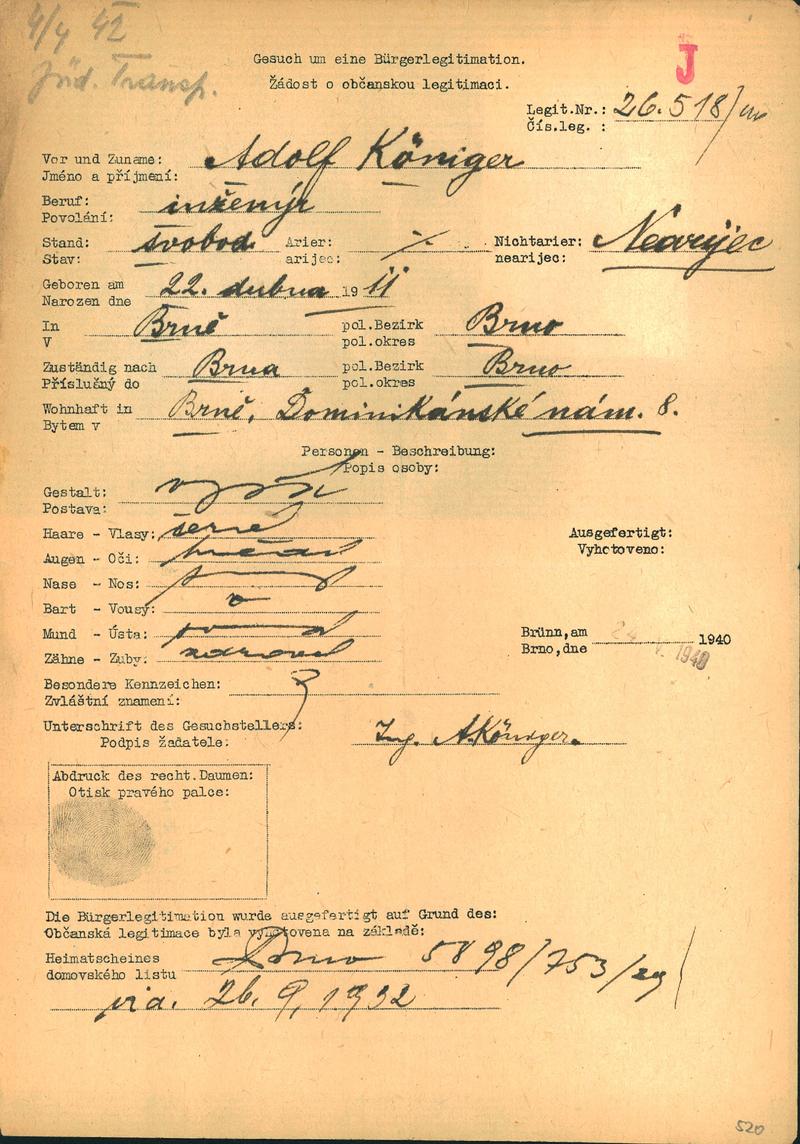 4/4 42
Jüd. Transp.
J
Gesuch um eine Bürgerlegitimation.
Žádost o občanskou legitimaci.
Legit.Nr.: 26.518/
Čís.leg. :
Vor und Zuname: Adolf Königer
Jméno a příjmení:
Beruf: inženýr
Povolání:
Stand: svobod. Arier: Nichtarier: Nearijec
Stav: arijec: nearijec:
Geboren am 22. dubna 1911
Narozen dne
In Brně pol.Bezirk Brno
V pol.okres
Zuständig nach Brna pol.Bezirk Brno
Příslušný do pol.okres
Wohnhaft in Brně, Dominikánské nám. 8.
Bytem v
Personen - Beschreibung:
Popis osoby:
Gestalt:
Postava:
Haare - Vlasy:
Augen - Oči:
Nase - Nos:
Bart - Vousý:
Mund - Ústa:
Zähne - Zuby: zdravé
Ausgefertigt:
Vyhotoveno:
Brünn,am 1940
Brno,dne 1940
Besondere Kennzeichen:
Zvláštní znamení:
Unterschrift des Gesuchstellers: Ing. A.Königer.
Podpis žadatele:
Abdruck des recht.Daumen:
Otisk pravého palce:
Die Bürgerlegitimation wurde ausgefertigt auf Grund des:
Občanská legitimace byla vyhotovena na základě:
Heimatscheines Brno 5898/753/29
domovského listu
26. 9. 1932
520